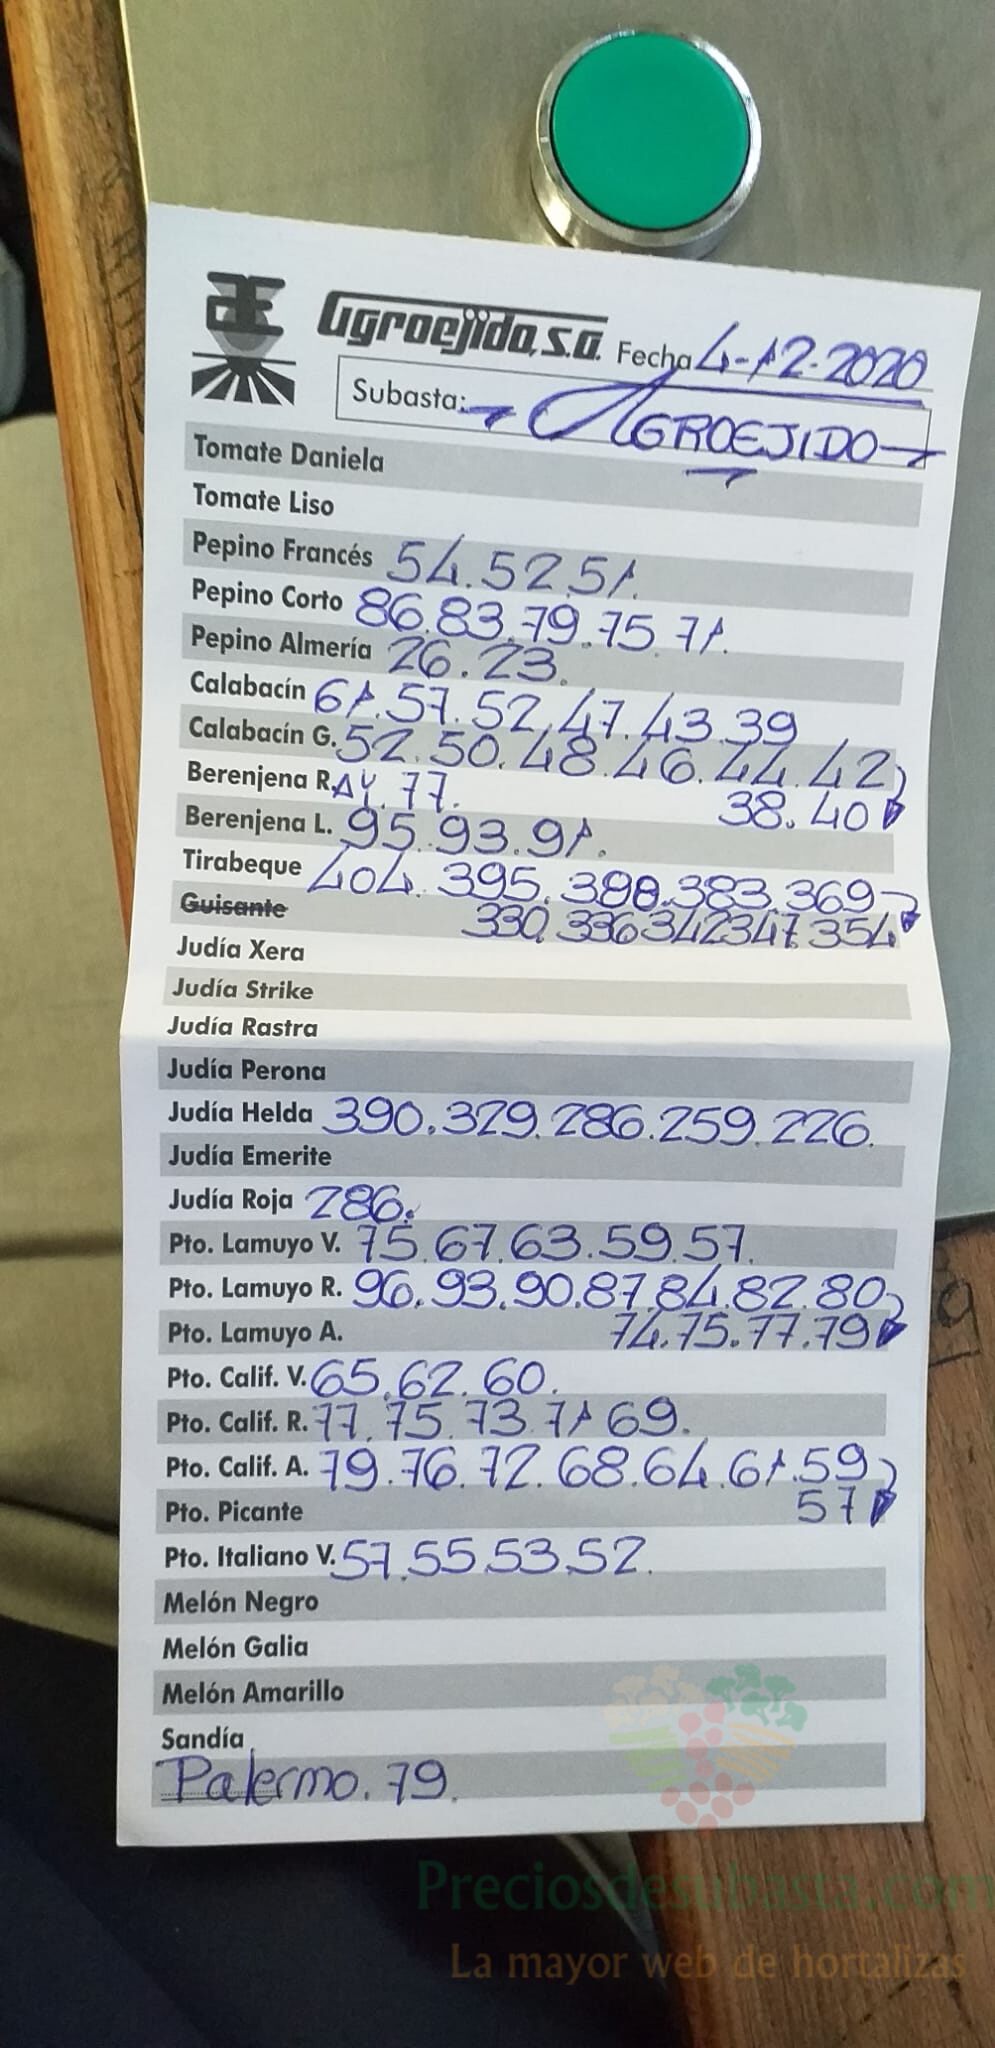 Agroejido, s.a. Fecha 4-12-2020
Subasta: AGROEJIDO
Tomate Daniela
Tomate Liso
Pepino Francés 54.52.51.
Pepino Corto 86.83.79.75.71.
Pepino Almería 26.23.
Calabacín 61.57.52.47.43.39
Calabacín G. 52.50.48.46.44.42
Berenjena RAY. 77. 38.40
Berenjena L. 95.93.91.
Tirabeque 404.395.390.383.369
Guisante 330.336.342.347.354
Judía Xera
Judía Strike
Judía Rastra
Judía Perona
Judía Helda 390.329.286.259.226.
Judía Emerite
Judía Roja 286.
Pto. Lamuyo V. 75.67.63.59.57.
Pto. Lamuyo R. 96.93.90.87.84.82.80
Pto. Lamuyo A. 74.75.77.79
Pto. Calif. V. 65.62.60.
Pto. Calif. R. 77.75.73.71 69.
Pto. Calif. A. 79.76.72.68.64.61.59
Pto. Picante 57
Pto. Italiano V. 57.55.53.52.
Melón Negro
Melón Galia
Melón Amarillo
Sandía
Palermo. 79.
Preciosdesubasta.com
La mayor web de hortalizas